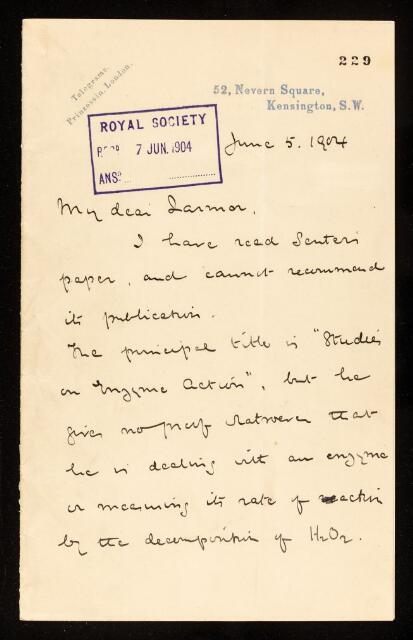 229
Telegrams,
Prinzessin, London.
52, Nevern Square,
Kensington, S.W.
ROYAL SOCIETY
7 JUN. 1904
ANSD
June 5. 1904
My dear Larmor,
I have read Senter's
paper, and cannot recommend
its publication.
The principal title is "Studies
on Enzyme Action", but he
gives no proof whatever that
he is dealing with an enzyme
or measuring its rate of reaction
by the decomposition of H2O2.